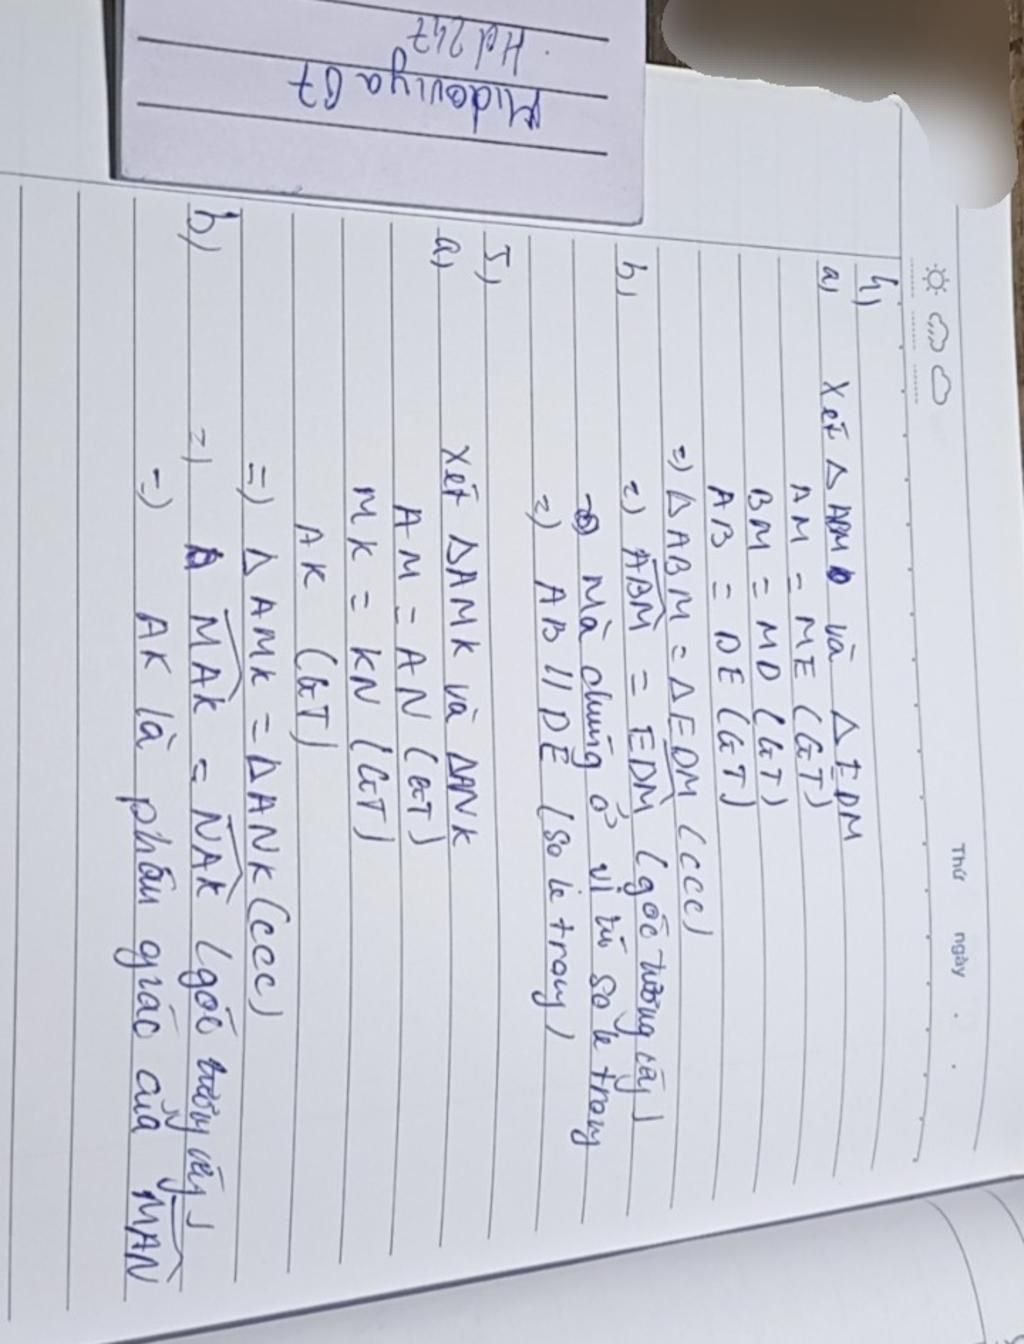 Midoviya 67
Hd 247
Thứ ngày . .
4,
a, Xét Δ ABM và Δ EDM
AM = ME (GT)
BM = MD (GT)
AB = DE (GT)
=) Δ ABM = Δ EDM (ccc)
b, =) ABM = EDM (góc tương ứng)
Mà chúng ở vị trí so le trong
=) AB // DE (so le trong)
5,
a, Xét ΔAMK và ΔANK
AM = AN (GT)
MK = KN (GT)
AK (GT)
=) Δ AMK = Δ ANK (ccc)
b, =) MAK = NAK (góc tương ứng)
=) AK là phân giác của MAN